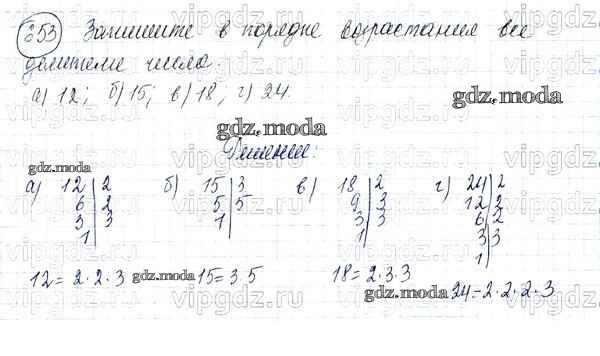 653 Запишите в порядке возрастания все
делители числа.
а) 12; б) 15; в) 18; г) 24.
gdz.moda
Решение.
gdz.moda
а) 12 | 2 б) 15 | 3 в) 18 | 2 г) 24 | 2
6 | 2 5 | 5 9 | 3 12 | 2
3 | 3 1 | 3 | 3 6 | 2
1 | 1 | 3 | 3
1 |
12 = 2·2·3 gdz.moda 15 = 3·5 18 = 2·3·3
gdz.moda 24 = 2·2·2·3
vipgdz.ru vipgdz.ru vipgdz.ru vipgdz.ru